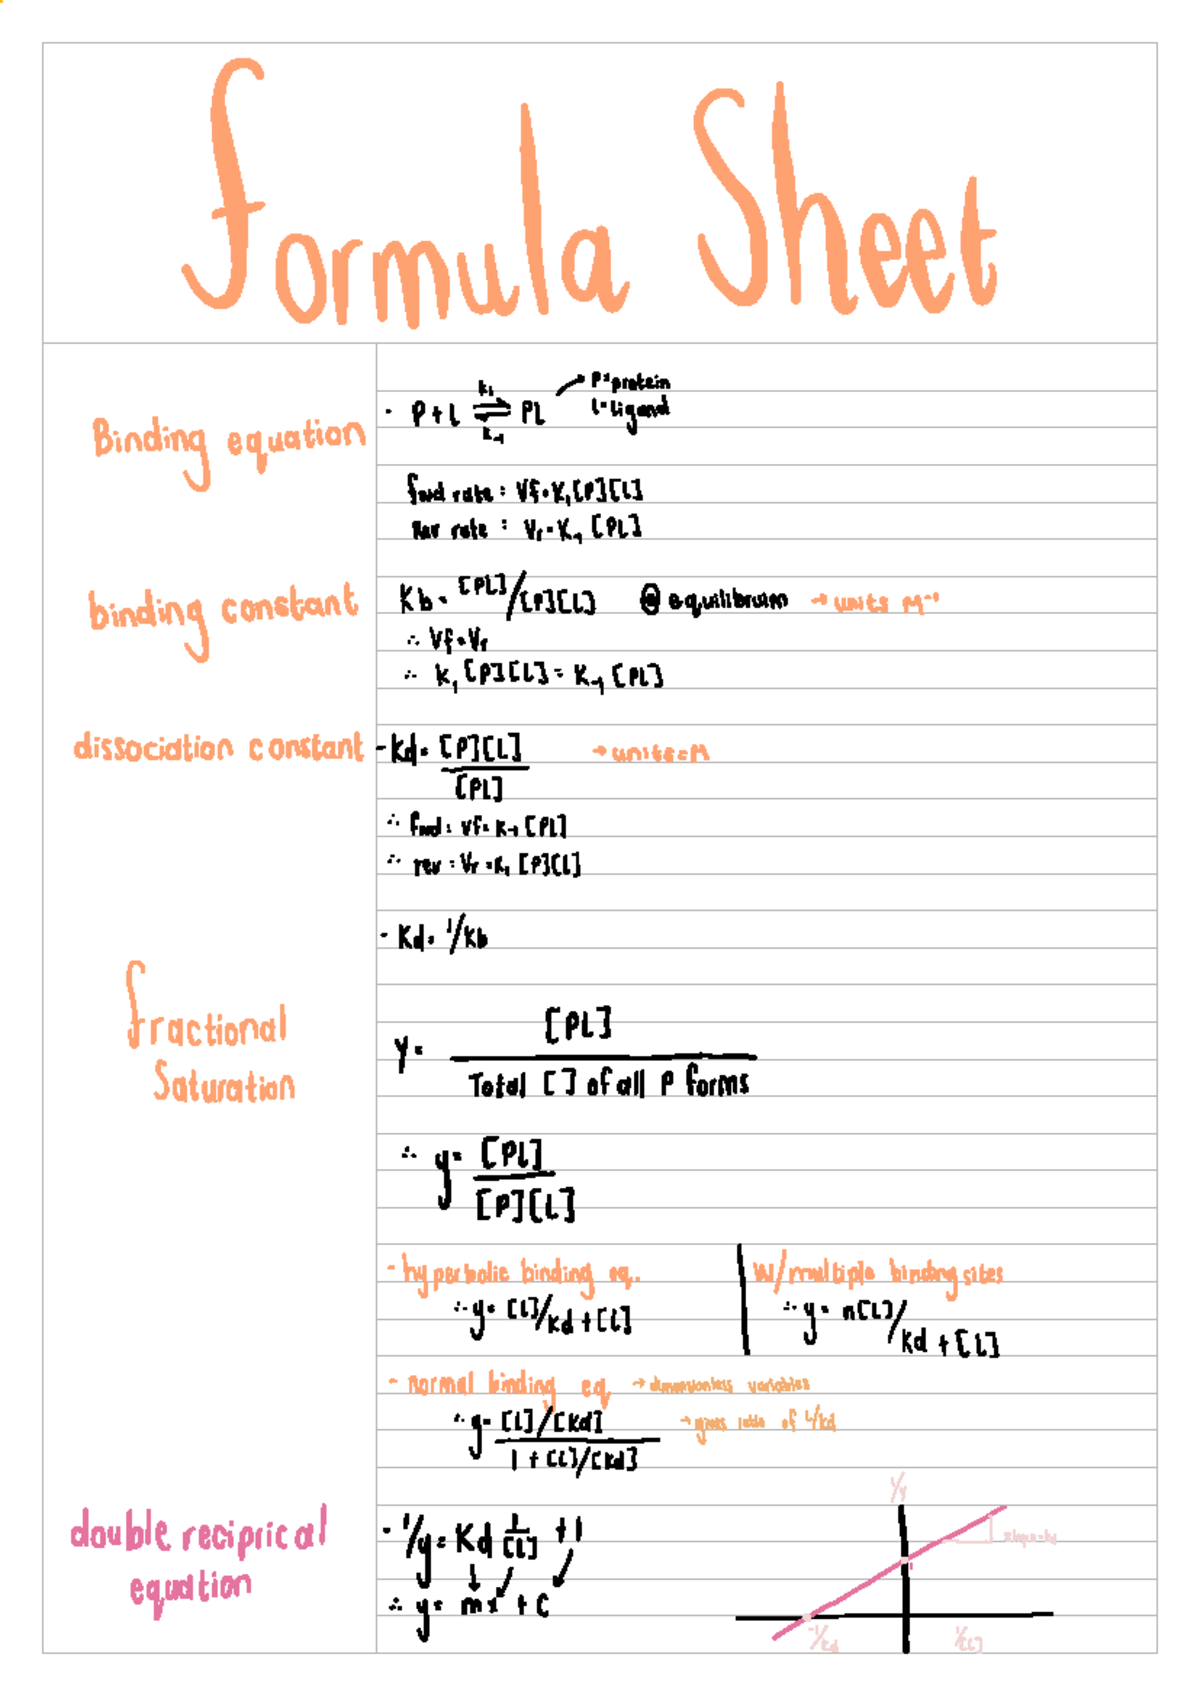 Formula Sheet
Binding equation
· P + L ⇌ PL
k₁
k₋₁
P = protein
L = ligand
fwd rate : Vf = K₁[P][L]
Rev rate : Vr = K₋₁ [PL]
binding constant
Kb = [PL]/[P][L] @ equilibrium → units M⁻¹
∴ Vf = Vr
∴ k₁ [P][L] = K₋₁ [PL]
dissociation constant
- Kd = [P][L] / [PL] → units = M
∴ fwd : Vf = K₋₁ [PL]
∴ rev : Vr = K₁ [P][L]
- Kd = 1/Kb
fractional
Saturation
Y = [PL] / Total [ ] of all P forms
∴ y = [PL] / [P][L]
- hyperbolic binding eq.
∴ y = [L]/Kd + [L]
w/ multiple binding sites
∴ y = n[L]/Kd + [L]
- normal binding eq → dimensionless variables
∴ y = [L]/[Kd] / 1 + [L]/[Kd]
→ gives ratio of L/Kd
double reciprical
equation
- 1/y = Kd 1/[L] + 1
∴ y = mx + c
1/y
slope = Kd
1
-1/Kd
1/[L]